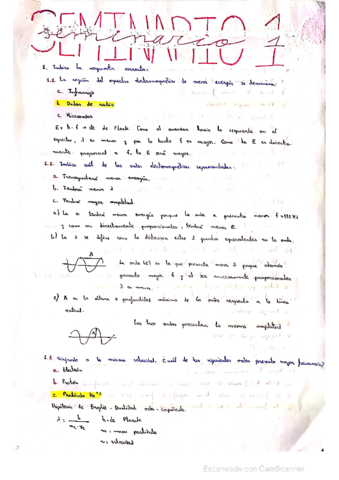 SEMINARIO 1
seminario 1
1. Indica la respuesta correcta:
1.1. La región del espectro electromagnético de menor energía, se denomina
a. Infrarrojo
b. Ondas de radio
c. Microondas
E = h · f → cte de Planck. Como al avanzar hacia la izquierda en el
espectro, λ es menor y por lo tanto f es mayor. Como la E es directa-
mente proporcional a f, la E será mayor.
1.2. Indica cuál de las ondas electromagnéticas representadas:
a. Transportará menor energía.
b. Tendrá menor λ
c. Tendrá mayor amplitud
a) La a tendrá menor energía porque la onda a presenta menor f
y como son directamente proporcionales, tendrá menor E.
b) La λ se define como la distancia entre 2 puntos equivalentes en la onda.
λ
La onda (c) es la que presenta menor λ porque además
presenta mayor f y al ser inversamente proporcionales
λ es menor.
c) A es la altura o profundidad máxima de la onda respecto a la línea
central.
Las tres ondas presentan la misma amplitud
1.3. Viajando a la misma velocidad. ¿Cuál de las siguientes ondas presenta mayor frecuencia?
a. Electrón
b. Protón
c. Partícula He⁺²
Hipótesis de Broglie - Dualidad onda-corpúsculo.
h = cte Planck
m = masa partícula
v = velocidad
Escaneado con CamScanner